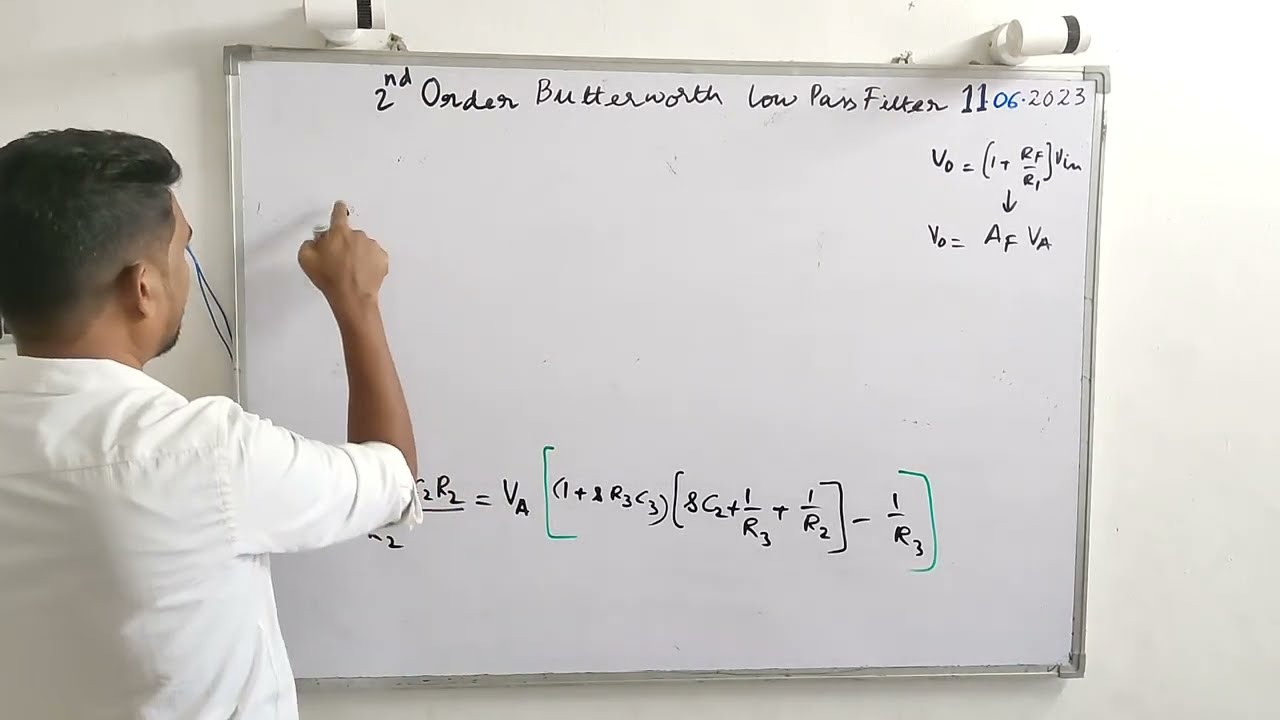 2nd Order Butterworth Low Pass Filter 11.06.2023
V0 = (1 + RF/R1] Vin
↓
V0 = AF VA
C2R2 = VA [(1+sR3C3)[sC2+1/R3+1/R2]−1/R3]
R2